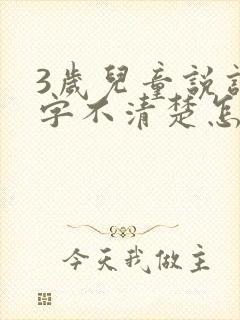 3歲兒童說話
字不清楚怎
今天我做主